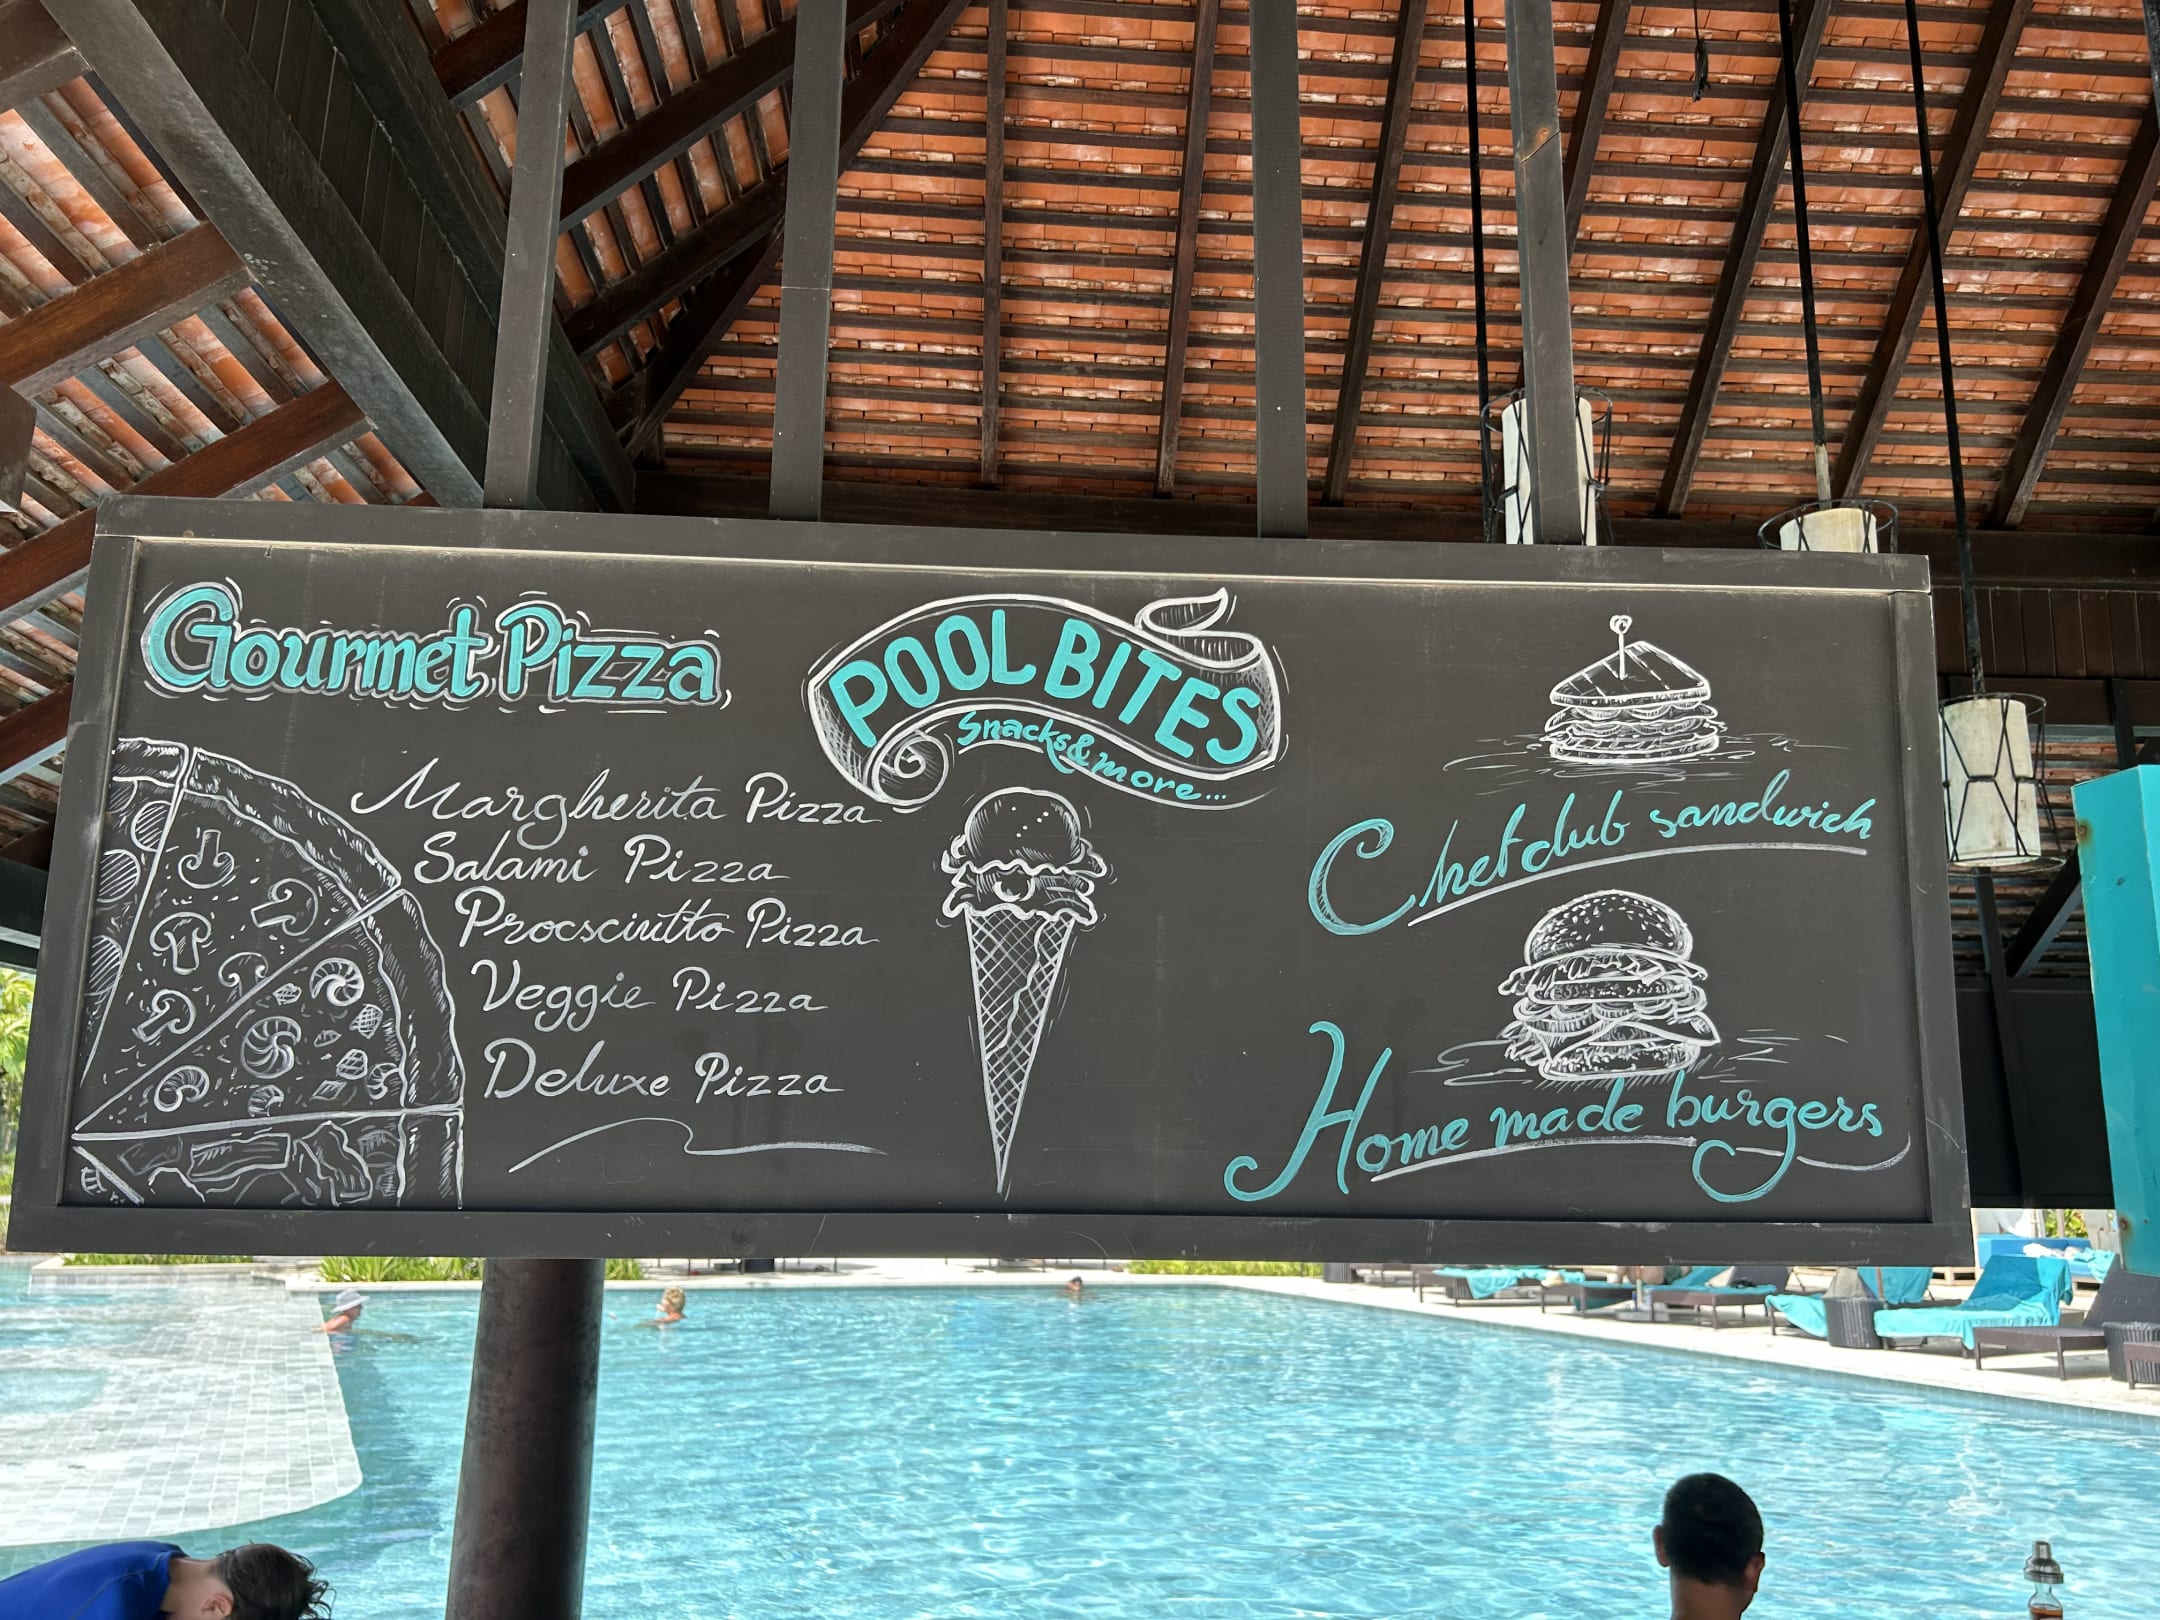 Gourmet Pizza
Margherita Pizza
Salami Pizza
Procsciutto Pizza
Veggie Pizza
Deluxe Pizza
POOL BITES
Snacks & more...
Chef club sandwich
Home made burgers